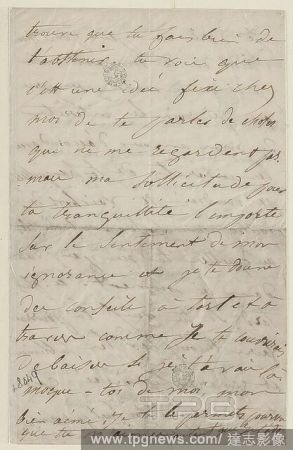 trouve que tu fais bien de
t'abstenir tu vois que
c'est une idée fixe chez
moi de te parler de choses
qui ne me regardent pas
mais ma sollicitude pour
ta tranquillité l'emporte
sur le sentiment de mon
ignorance et je te donne
des conseils à tort et à
travers comme je te
de baisers si j'étais là
moque-toi de moi mon
bien aimé je te le
que tu
www.tpgnews.com / 達志影像
TPG